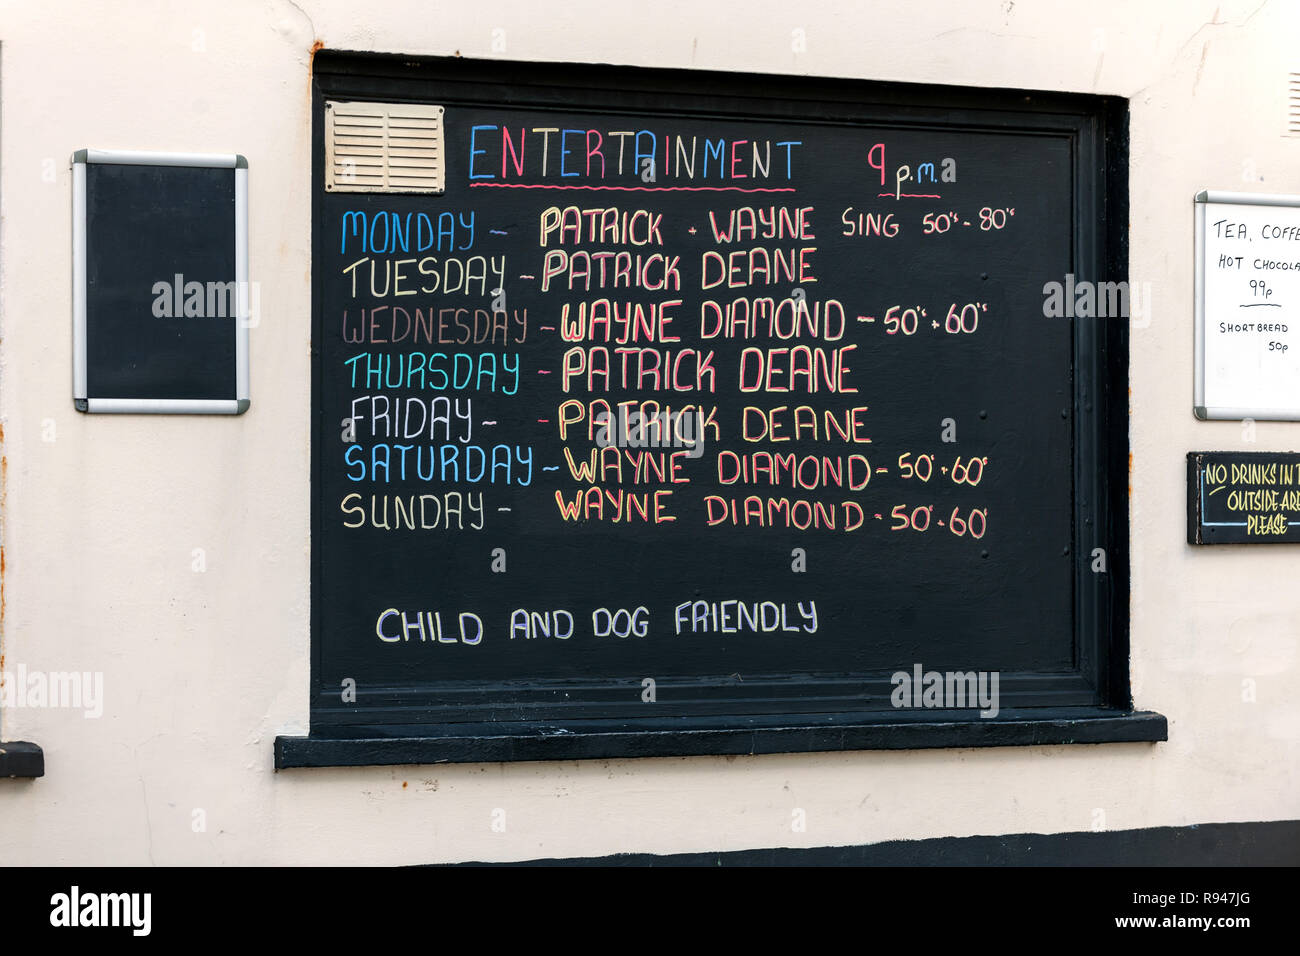 ENTERTAINMENT 9 p.m.
MONDAY - PATRICK + WAYNE SING 50's - 80's
TUESDAY - PATRICK DEANE
WEDNESDAY - WAYNE DIAMOND - 50's + 60's
THURSDAY - PATRICK DEANE
FRIDAY - - PATRICK DEANE
SATURDAY - WAYNE DIAMOND - 50's + 60's
SUNDAY - WAYNE DIAMOND - 50's + 60's
CHILD AND DOG FRIENDLY
TEA, COFFE
HOT CHOCOLA
99p
SHORTBREAD
50p
NO DRINKS IN T
OUTSIDE ARE
PLEASE
alamy
alamy
Image ID: R947JG
www.alamy.com